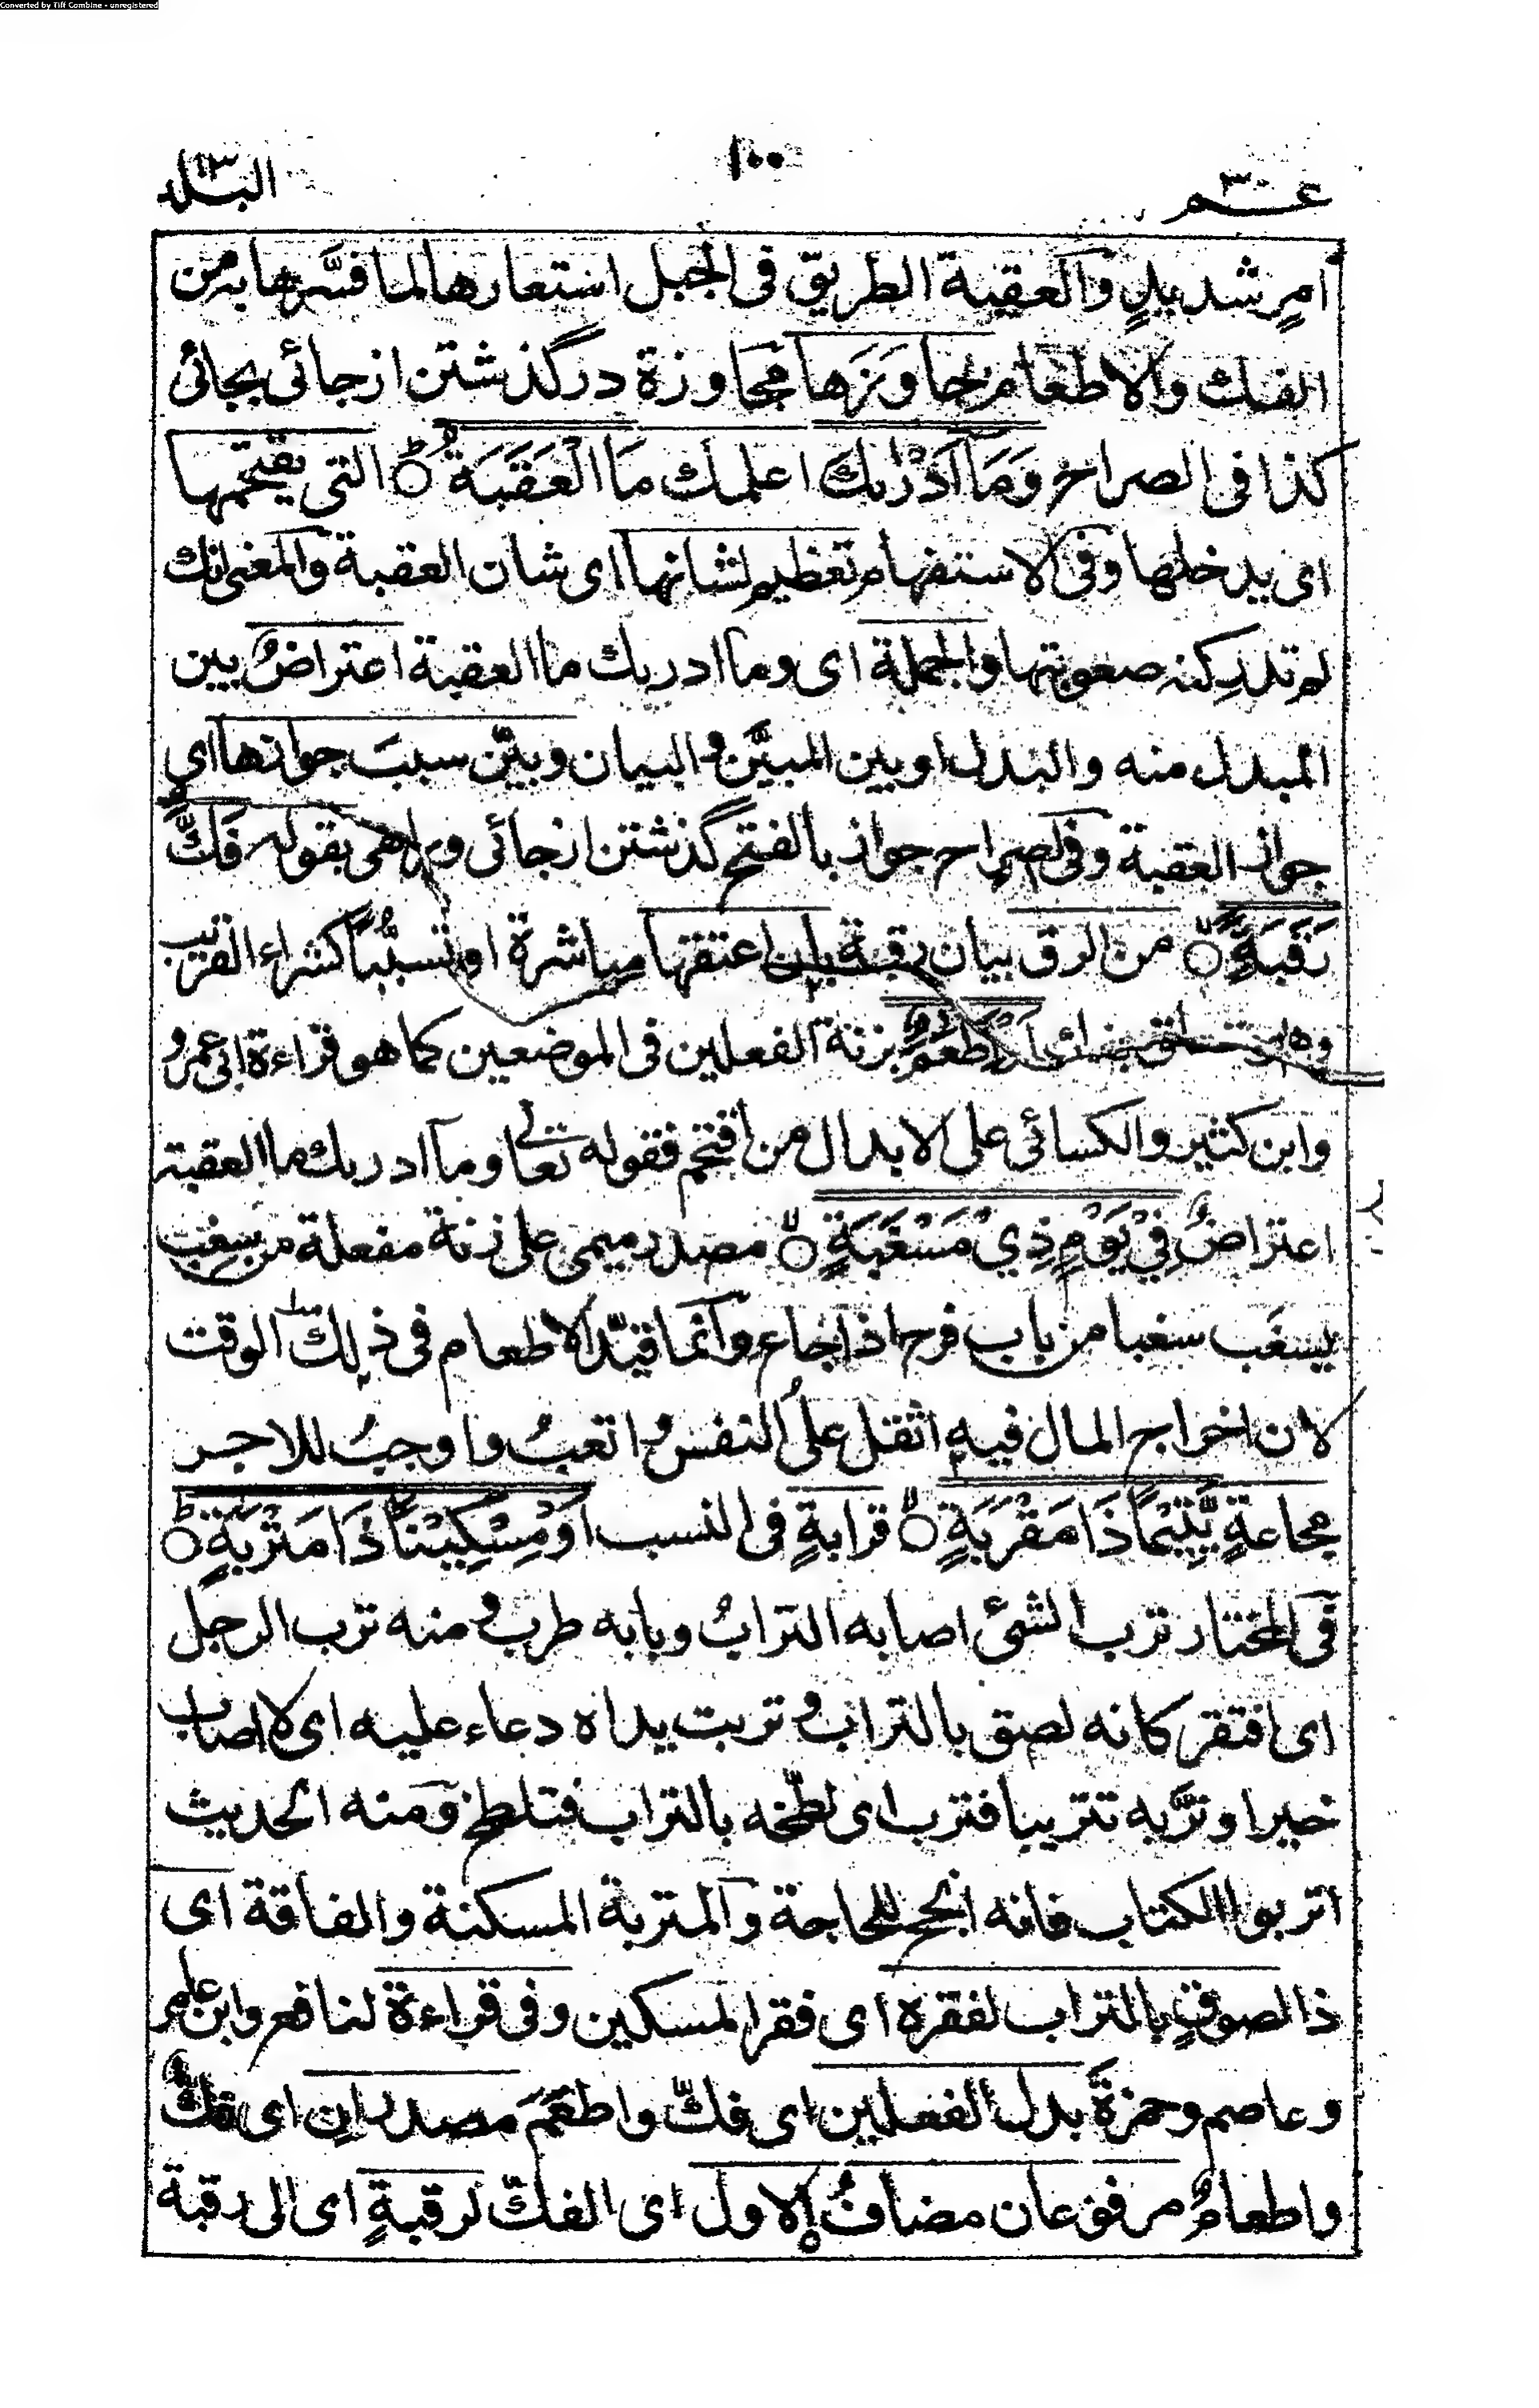 Converted by Tiff Combine - unregistered
عم ٣٠
١٠٠
البلد
امرٍ شديدٍ والعقبة الطريق فى الجبل استعارها لما فسَّرها به من
الفك والاطعام جاوَزَها مجاوزة درگذشتن ازجائى بجائى
كذا فى الصراح وَمَآ اَدْرٰىكَ اعلمك مَا الْعَقَبَةُ التى يقتحمها
اى يدخلها وفى الاستفهام تعظيم لشانها اى شان العقبة والمعنى انك
لم تدرِ كنه صعوبتها والجملة اى وما ادريك ما العقبة اعتراضٌ بين
المبدل منه والبدل او بين المبيَّن والبيان وبيّن سببَ جوازها اى
جواز العقبة وفى الصراح جواز بالفتح گذشتن ازجائى بقوله فَكُّ
رَقَبَةٍ من الرق بيان رقبة بان اعتقها مباشرة او تسبّبًا كشراء القريب
اَوْ اَطْعَمَ بزنة الفعلين فى الموضعين كما هو قراءة ابى عمرو
وابن كثير والكسائى على الابدال من اقتحم فقوله تعالى وما ادريك ما العقبة
اعتراضٌ فِيْ يَوْمٍ ذِيْ مَسْغَبَةٍ مصدر ميمى على زنة مفعلة من سغِب
يسغَب سغبا من باب فرح اذا جاع وانما قيّد الاطعام فى ذلك الوقت
لان اخراج المال فيه اثقل على النفس واتعبُ واوجبُ للاجر
مجاعةٍ يَّتِيْمًا ذَا مَقْرَبَةٍ قرابةٍ فى النسب اَوْ مِسْكِيْنًا ذَا مَتْرَبَةٍ
فى المختار ترب الشئ اصابه الترابُ وبابه طرب ومنه ترب الرجل
اى افتقر كانه لصق بالتراب وتربت يداه دعاء عليه اى لا اصاب
خيرا وترَّبه تتريبا فترب اى لطّخه بالتراب فتلطخ ومنه الحديث
اتربوا الكتاب فانه انجح للحاجة والمتربة المسكنة والفاقة اى
ذا لصوقٍ بالتراب لفقره اى فقر المسكين وفى قراءة لنافع وابن عامر
وعاصم وحمزةَ بدل الفعلين اى فكّ واطعَمَ مصدرانِ اى فكٌّ
واطعامٌ مرفوعان مضافٌ الاول اى الفكّ لرقبةٍ اى الى رقبة